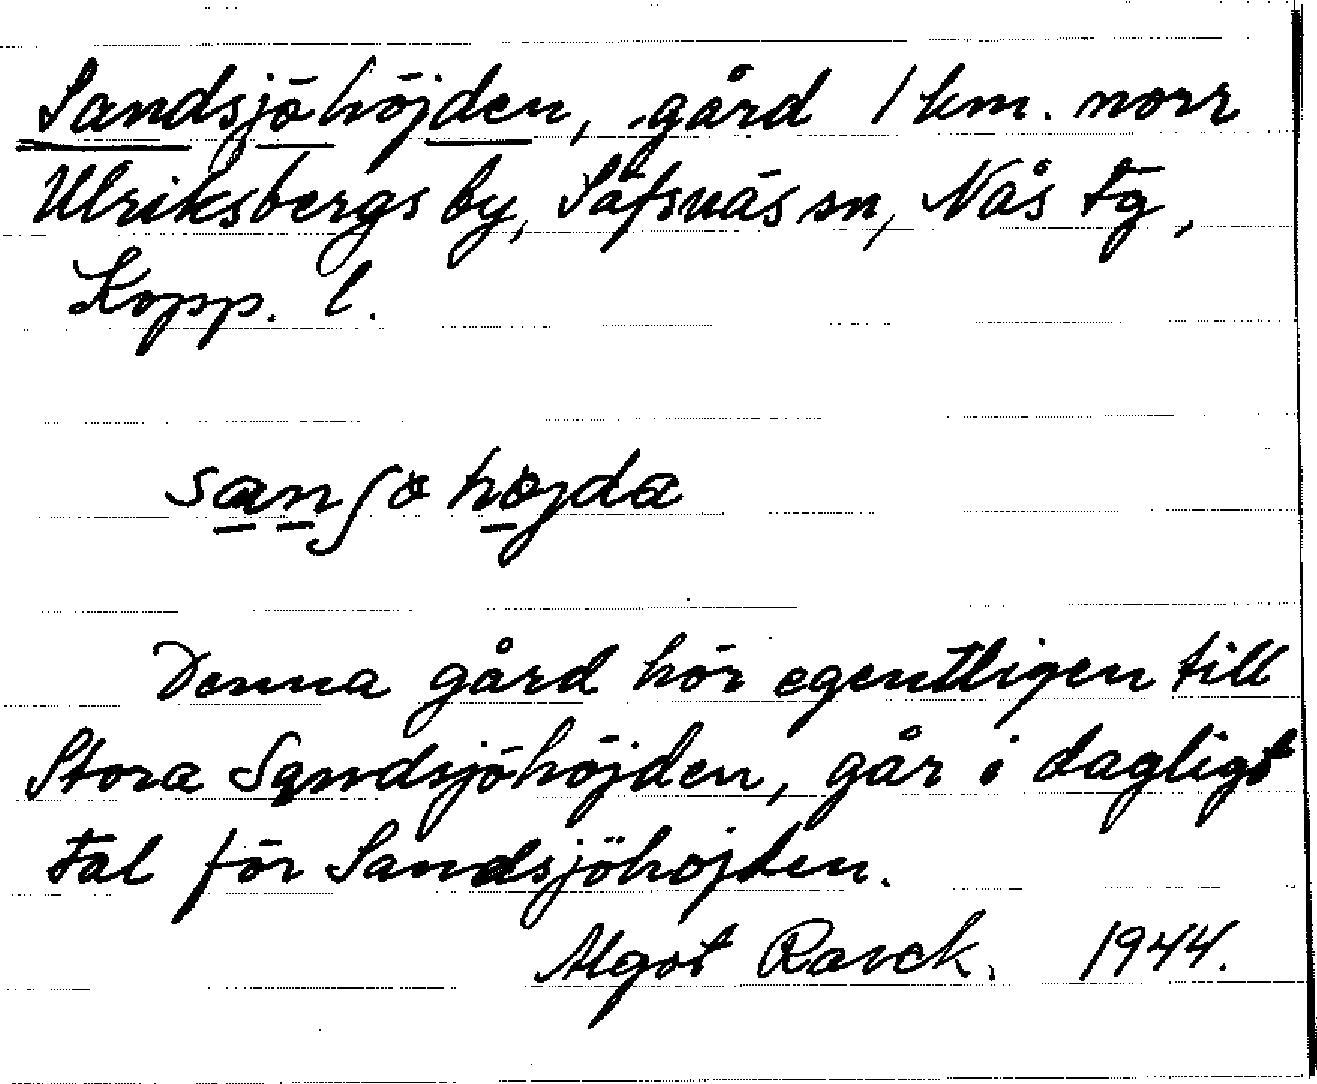 Sandsjöhöjden, gård 1 km. norr
Ulriksbergs by, Säfsnäs sn, Nås tg,
Kopp. l.
sanʃö höjda
Denna gård hör egentligen till
Stora Sandsjöhöjden, går i dagligt
tal för Sandsjöhöjden.
Algot Ravck. 1944.